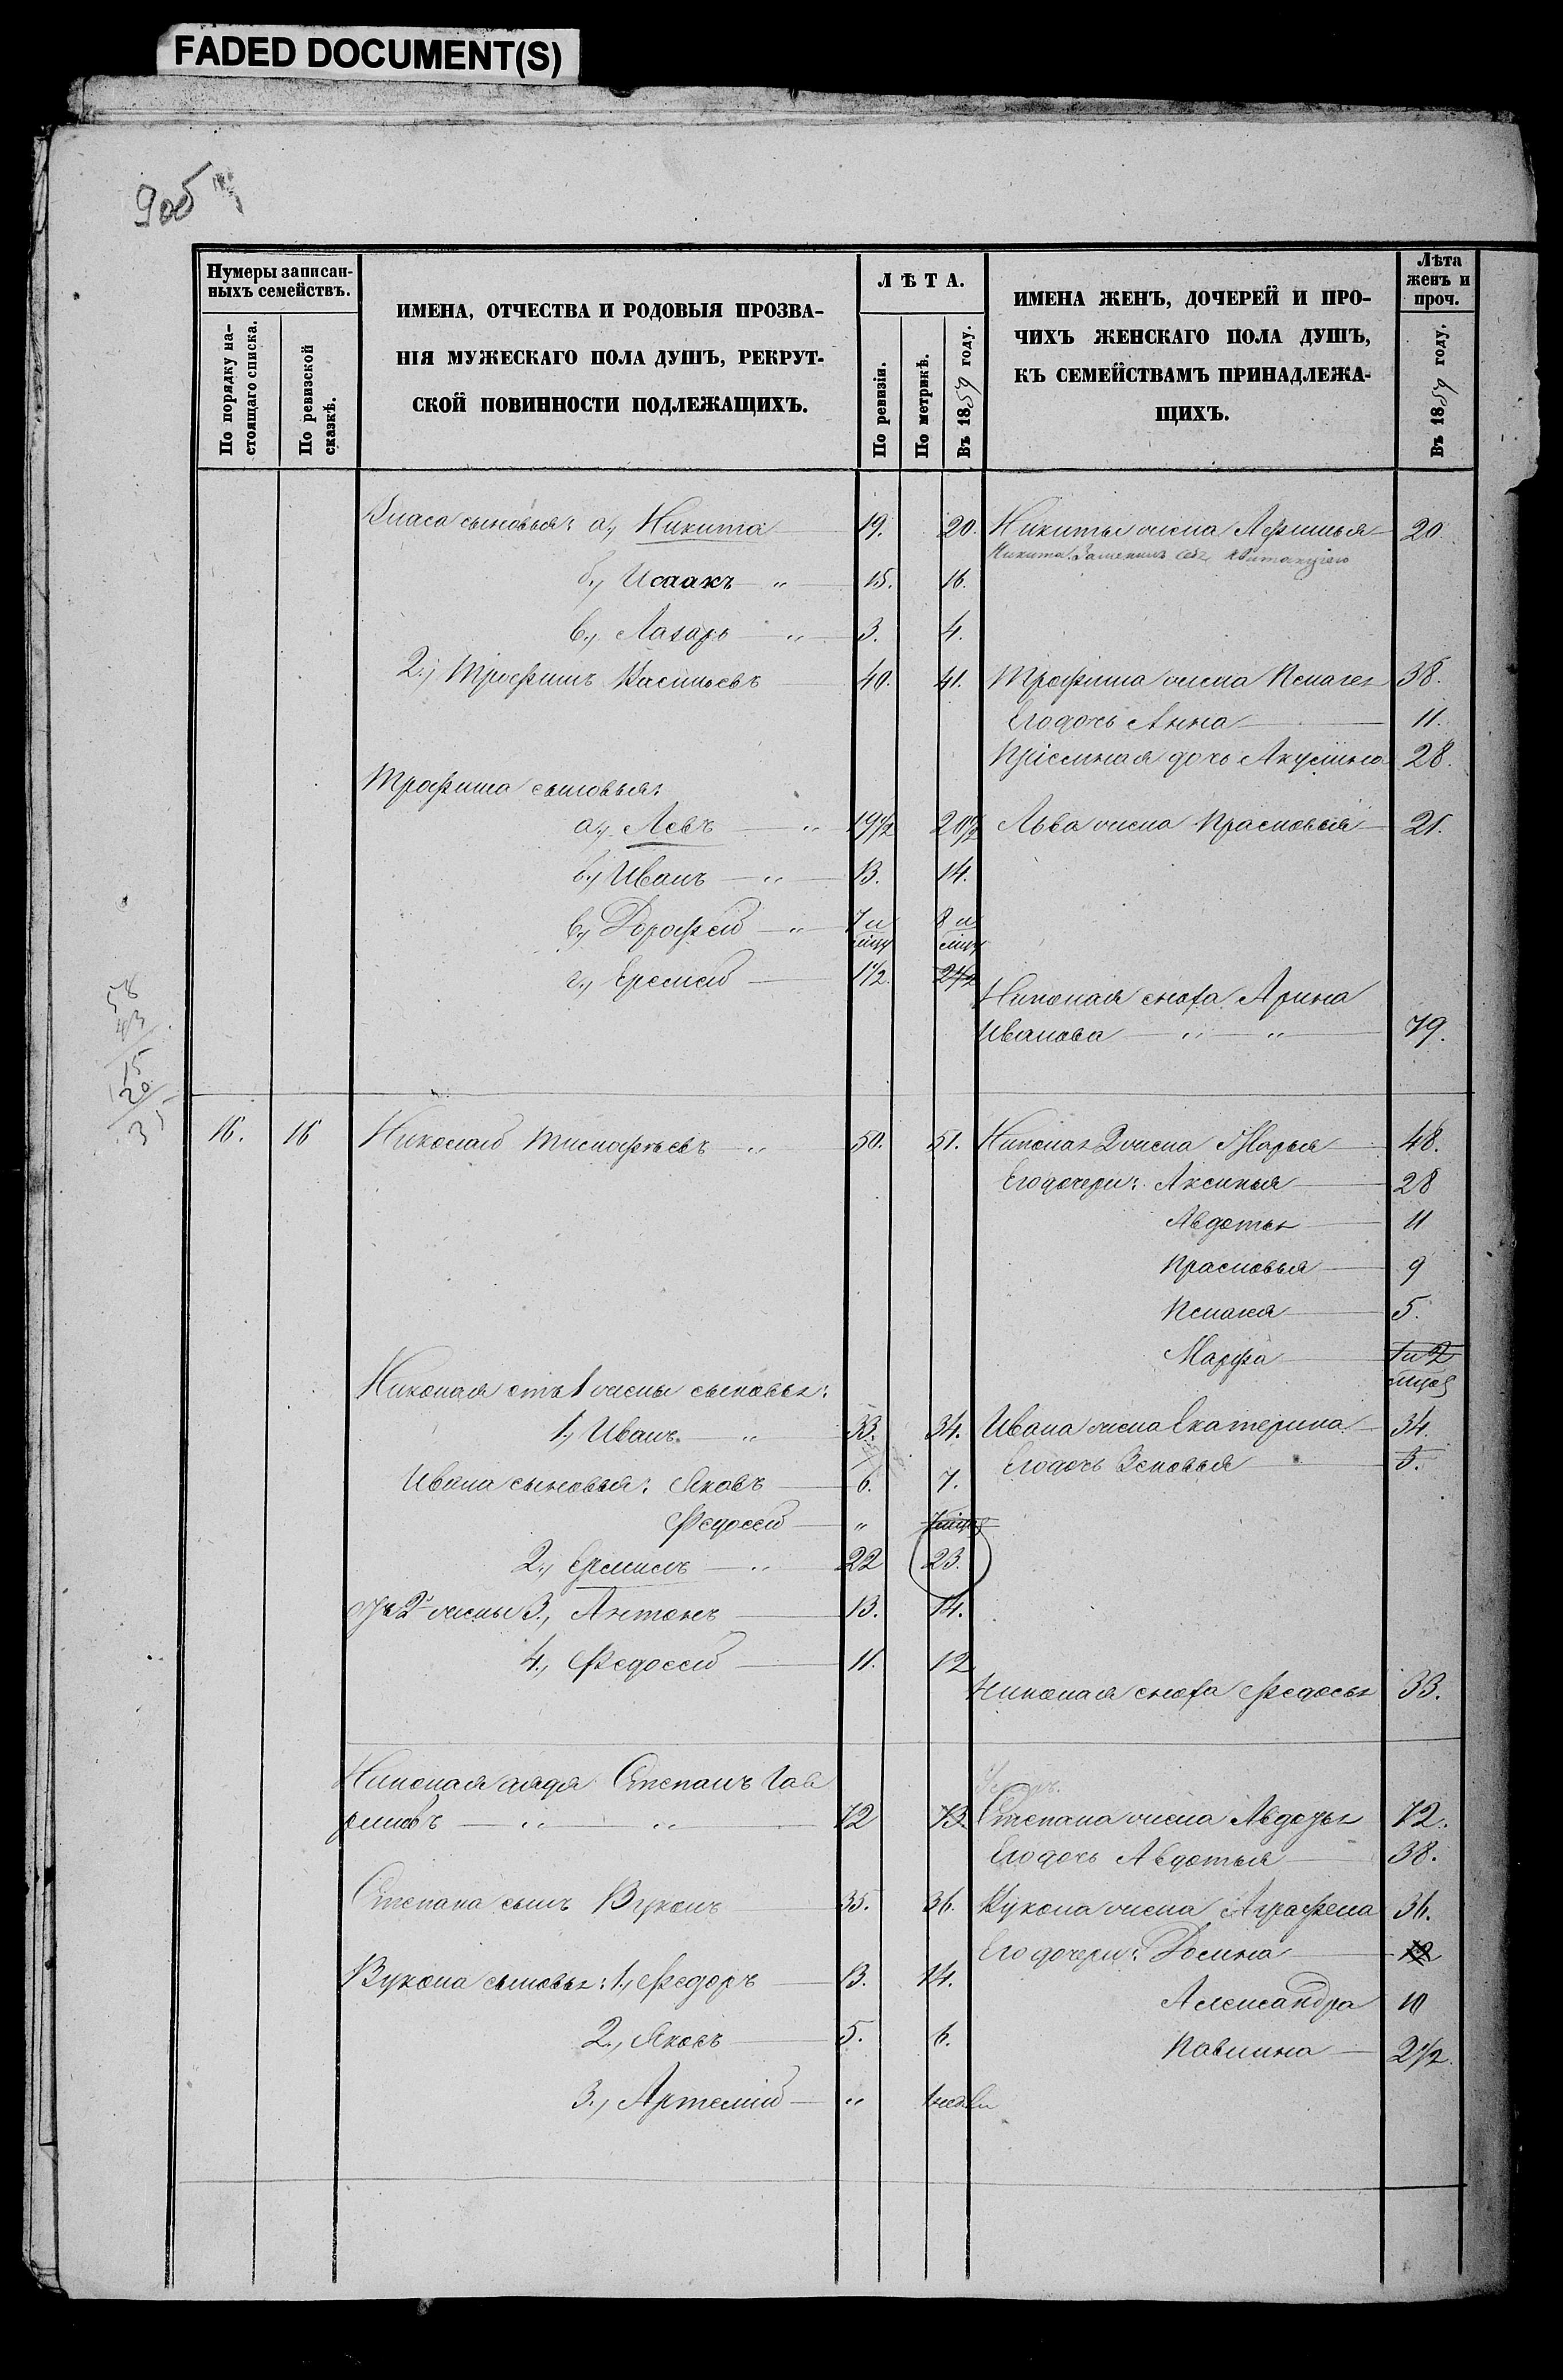 FADED DOCUMENT(S)
9об
Нумеры записан-
ныхъ семействъ.
По порядку на-
стоящаго списка.
По ревизской
сказкѣ.
ИМЕНА, ОТЧЕСТВА И РОДОВЫЯ ПРОЗВА-
НІЯ МУЖЕСКАГО ПОЛА ДУШЪ, РЕКРУТ-
СКОЙ ПОВИННОСТИ ПОДЛЕЖАЩИХЪ.
ЛѢТА.
По ревизіи.
По метрикѣ.
Въ 1859 году.
ИМЕНА ЖЕНЪ, ДОЧЕРЕЙ И ПРО-
ЧИХЪ ЖЕНСКАГО ПОЛА ДУШЪ,
КЪ СЕМЕЙСТВАМЪ ПРИНАДЛЕЖА-
ЩИХЪ.
Лѣта
женъ и
проч.
Въ 1859 году.
Власа сыновья: а., Никита 19. 20. Никиты жена Афимья 20
Никита
б., Исаакъ " 15. 16.
в., Лазарь " 3. 4.
2., Трофимъ Васильевъ 40. 41. Трофима жена Пелагея 38.
Его дочь Анна 11.
Пріемная дочь Акулина 28.
Трофима сыновья:
а., Левъ " 19 1/2 20 1/2 Льва жена Прасковья 21.
б., Иванъ " 13. 14.
в., Дорофей " 7 и 8 и
г., Еремей 1 1/2. 2 1/2
Николая сноха Арина
Иванова " " 79.
58
43
15
20
35
16. 16 Николай " 50. 51. Николая 2 жена Марья 48.
Его дочери: Аксинья 28
Авдотья 11
Прасковья 9
Пелагея 5.
Марфа 1 и 2
мѣсяц
Николая отъ 1 жены сыновья:
1., Иванъ " 33. 34. Ивана жена Екатерина 34.
Его дочь Зеновья 3.
Ивана сыновья: Яковъ 6. 7.
Федосей "
2., Ермилъ " 22 23.
отъ 2й жены 3., Антонъ 13. 14.
4., Федосей 11. 12
Николая сноха Федосья 33.
Николая дядя Степанъ Гав
риловъ " " 72 73. Степана жена Авдотья 72.
Его дочь Авдотья 38.
Степана сынъ Вуколъ 35. 36. Вукола жена Аграфена 36.
Его дочери: Домна 12
Вукола сыновья: 1., Федоръ 13. 14.
Александра 10
2., Яковъ 5. 6.
Павлина 2 1/2.
3., Артемій " 1 недели